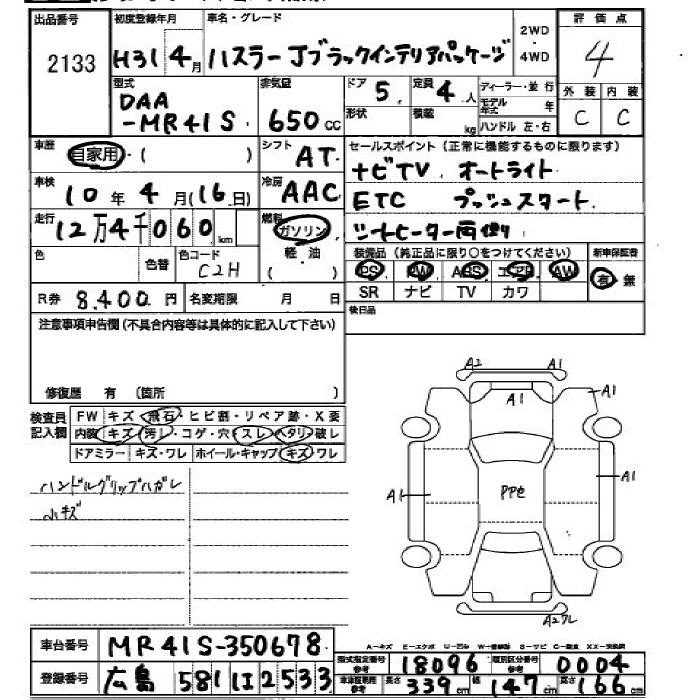 出品番号 2133
初度登録年月 H31 4月
車名・グレード ハスラー Jブラックインテリアパッケージ
2WD・4WD
評価点 4
外装 内装
C C
型式 DAA-MR41S
排気量 650cc
ドア 5
定員 4人
形状 積載 kg
ディーラー・並行
モデル年式 年
ハンドル 左・右
車歴 自家用・( )
シフト AT
セールスポイント(正常に機能するものに限ります)
ナビTV オートライト
車検 10年4月(16日)
冷房 AAC
ETC プッシュスタート
走行 12万4千060km
燃料 ガソリン 軽・油 ( )
シートヒーター両側
色 色替 色コード C2H
装備品(純正品に限り○をつけてください) 新車保証書
PS PW ABS エアB AW 有・無
SR ナビ TV カワ
R券 8,400円 名変期限 月 日
後日品
注意事項申告欄(不具合内容等は具体的に記入して下さい)
修復歴 有 (箇所 )
検査員記入欄
FW キズ・飛石・ヒビ割・リペア跡・X要
内装 キズ・汚レ・コゲ・穴・スレ・ヘタリ・破レ
ドアミラー キズ・ワレ ホイール・キャップ キズ・ワレ
ハンドルグリップハガレ
小キズ
A2 A1
A1 A1
A1 PPと A1
A2フレ
車台番号 MR41S-350678
A-キズ E-エクボ U-凹み W-補修跡 S-サビ C-腐食 XX-交換済
型式指定番号 参考 18096 類別区分番号 参考 0004
登録番号 広島 581 い2533
車体寸法 参考 長さ 339cm 幅 147cm 高さ 166cm